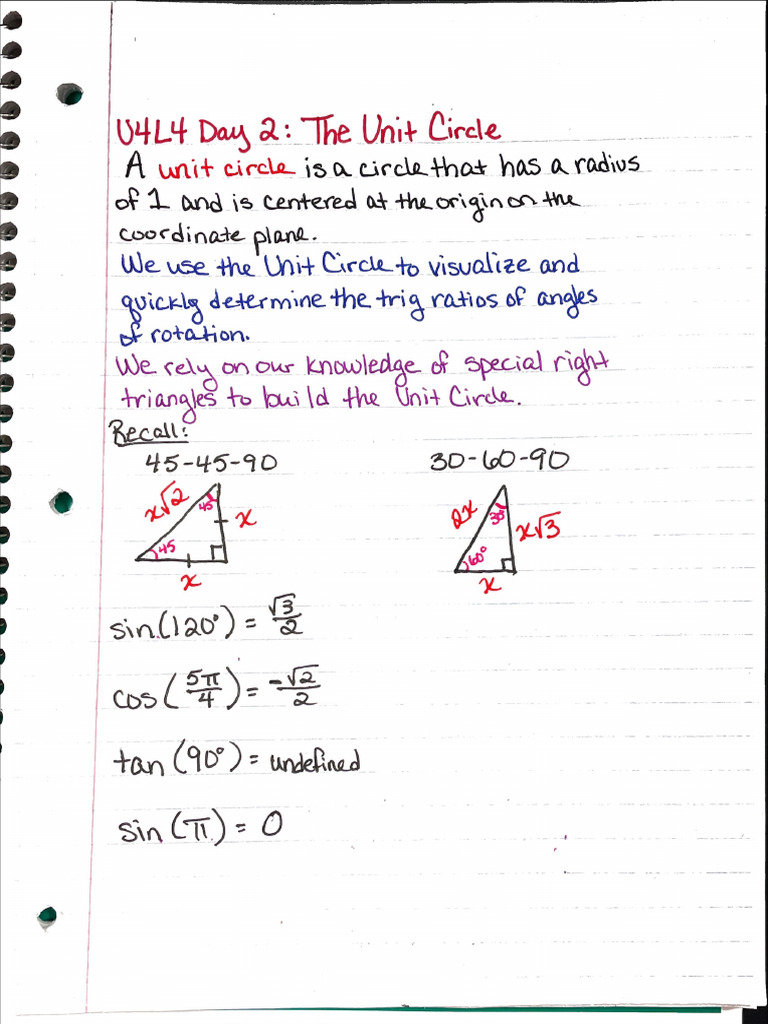 U4L4 Day 2: The Unit Circle
A unit circle is a circle that has a radius
of 1 and is centered at the origin on the
coordinate plane.
We use the Unit Circle to visualize and
quickly determine the trig ratios of angles
of rotation.
We rely on our knowledge of special right
triangles to build the Unit Circle.
Recall:
45-45-90
x√2
45
45
x
x
30-60-90
2x
30
60°
x√3
x
sin(120°) = √3/2
cos(5π/4) = -√2/2
tan(90°) = undefined
sin(π) = 0